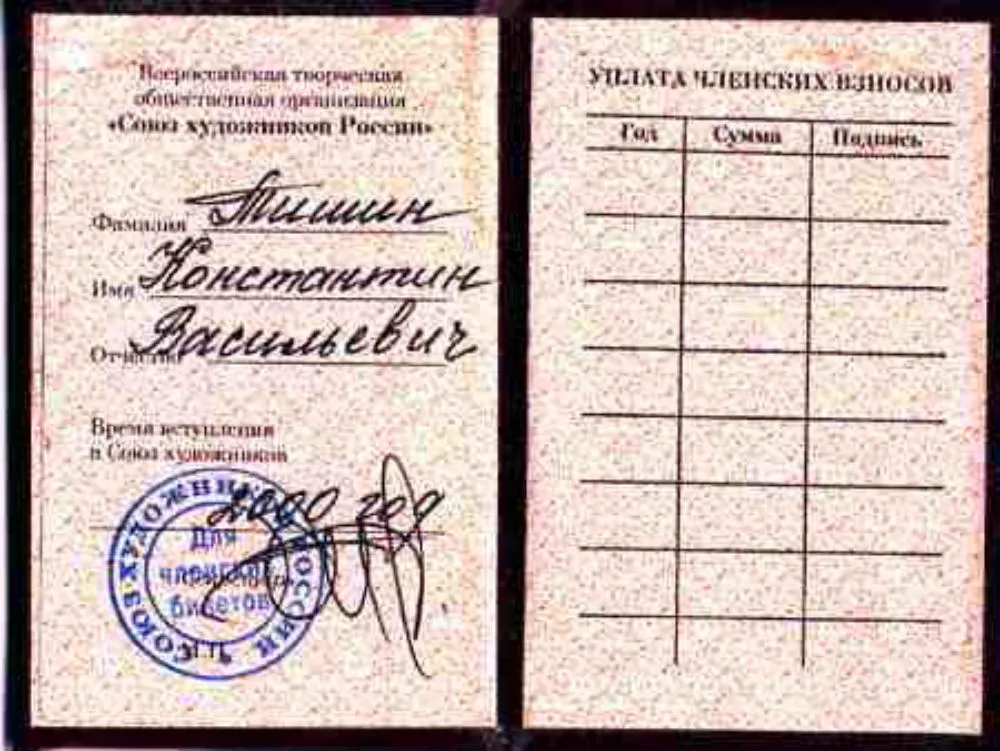 Всероссийская творческая
общественная организация
«Союз художников России»
Фамилия Тишин
Имя Константин
Отчество Васильевич
Время вступления
в Союз художников
2000 год
СОЮЗ ХУДОЖНИКОВ РОССИИ
Для
членских
билетов
М.П.
УПЛАТА ЧЛЕНСКИХ ВЗНОСОВ
Год Сумма Подпись